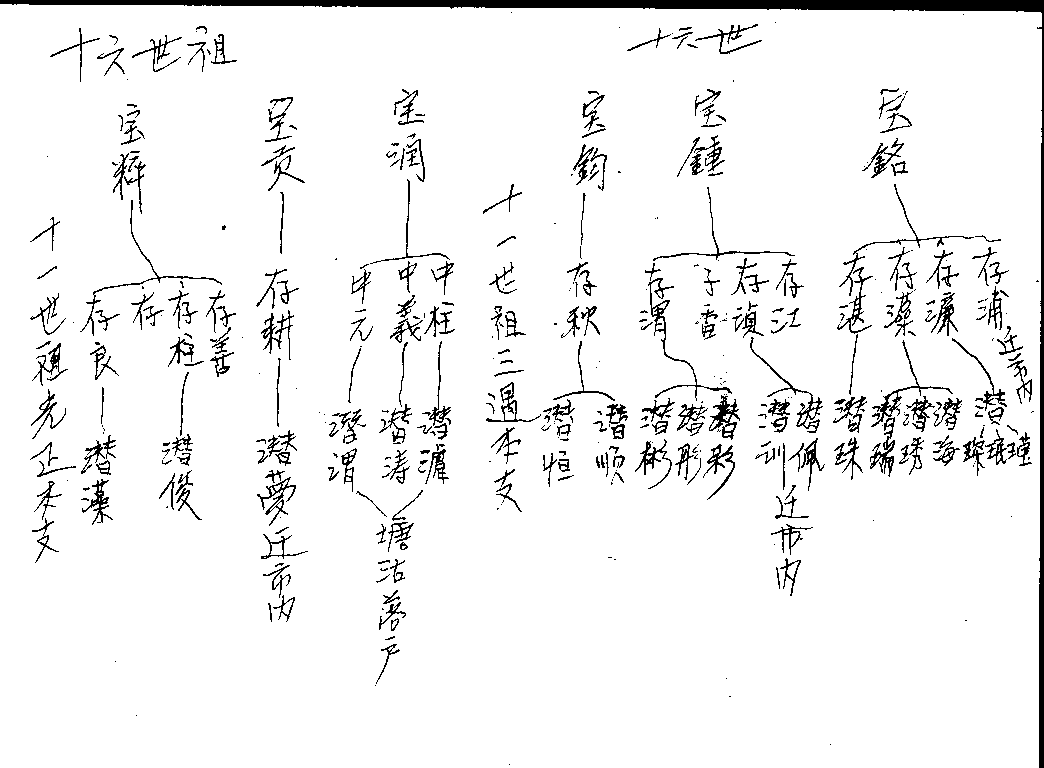 十六世
宝銘
存浦迁市内
存濂
存漢
存湛
潜琛
珉
瑾
潜海
潜琇
潜瑞
潜珠
宝鍾
存江
存禎
子雷
存渭
潜佩
潜训迁市内
潜彩
潜彤
潜彬
宝鈞
存秋
潜顺
潜恒
十一世祖三遇本支
十六世祖
宝润
中柱
中義
中元
潜滬
潜涛
潜渭
塘沽落户
宝贡
存耕
潜夢迁市内
宝粹
存善
存柱
存
存良
潜俊
潜藻
十一世祖光正本支